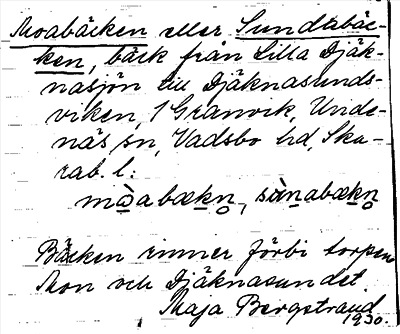 Moabäcken eller Sundabäc-
ken, bäck från Lilla Djäk-
nasjön till Djäknasunds-
viken, 1 Granvik, Unde-
näs sn, Vadsbo hd, Ska-
rab. l:
mòabækn̥, sùnabækn̥
Bäcken rinner förbi torpen
Mon och Djäknasundet.
Maja Bergstrand
1930.